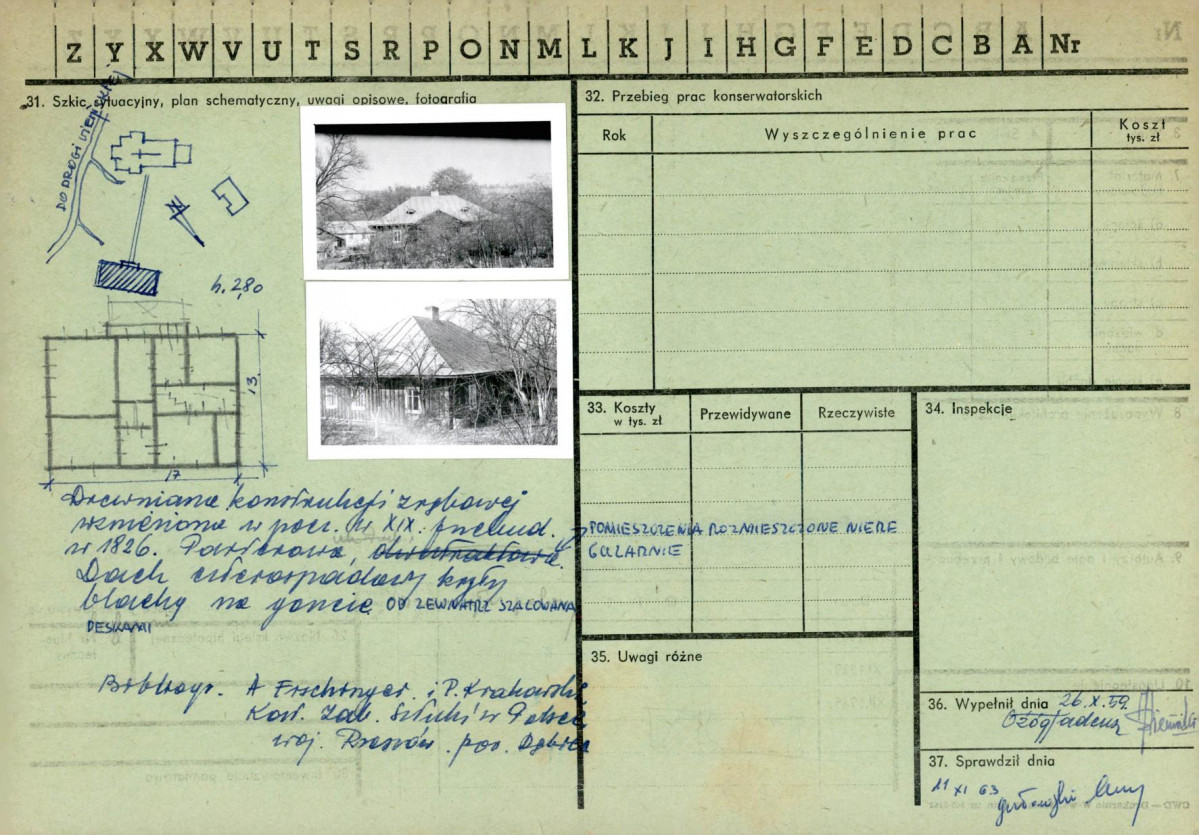 Z Y X W V U T S R P O N M L K J I H G F E D C B A Nr
31. Szkic sytuacyjny, plan schematyczny, uwagi opisowe, fotografia
DO DROGI
h. 2,80
13
17
Drewniana konstrukcji zrębowej
wzniesiona w pocz. w XIX.
w 1826. Parterowa, dwutraktowa.
Dach czterospadowy kryty
blachą na goncie OD ZEWNĄTRZ SZALOWANA
DESKAMI
POMIESZCZENIA ROZMIESZCZONE NIERE
GULARNIE
Bibliogr. A Fischinger i P. Krakowski
Kat. Zab. Sztuki w Polsce
woj. Rzeszów. pow. Dębica
32. Przebieg prac konserwatorskich
Rok
Wyszczególnienie prac
Koszt
tys. zł
33. Koszty
w tys. zł
Przewidywane
Rzeczywiste
34. Inspekcje
35. Uwagi różne
36. Wypełnił dnia 26.X.59.
Ożóg Tadeusz
37. Sprawdził dnia
11 XI 63